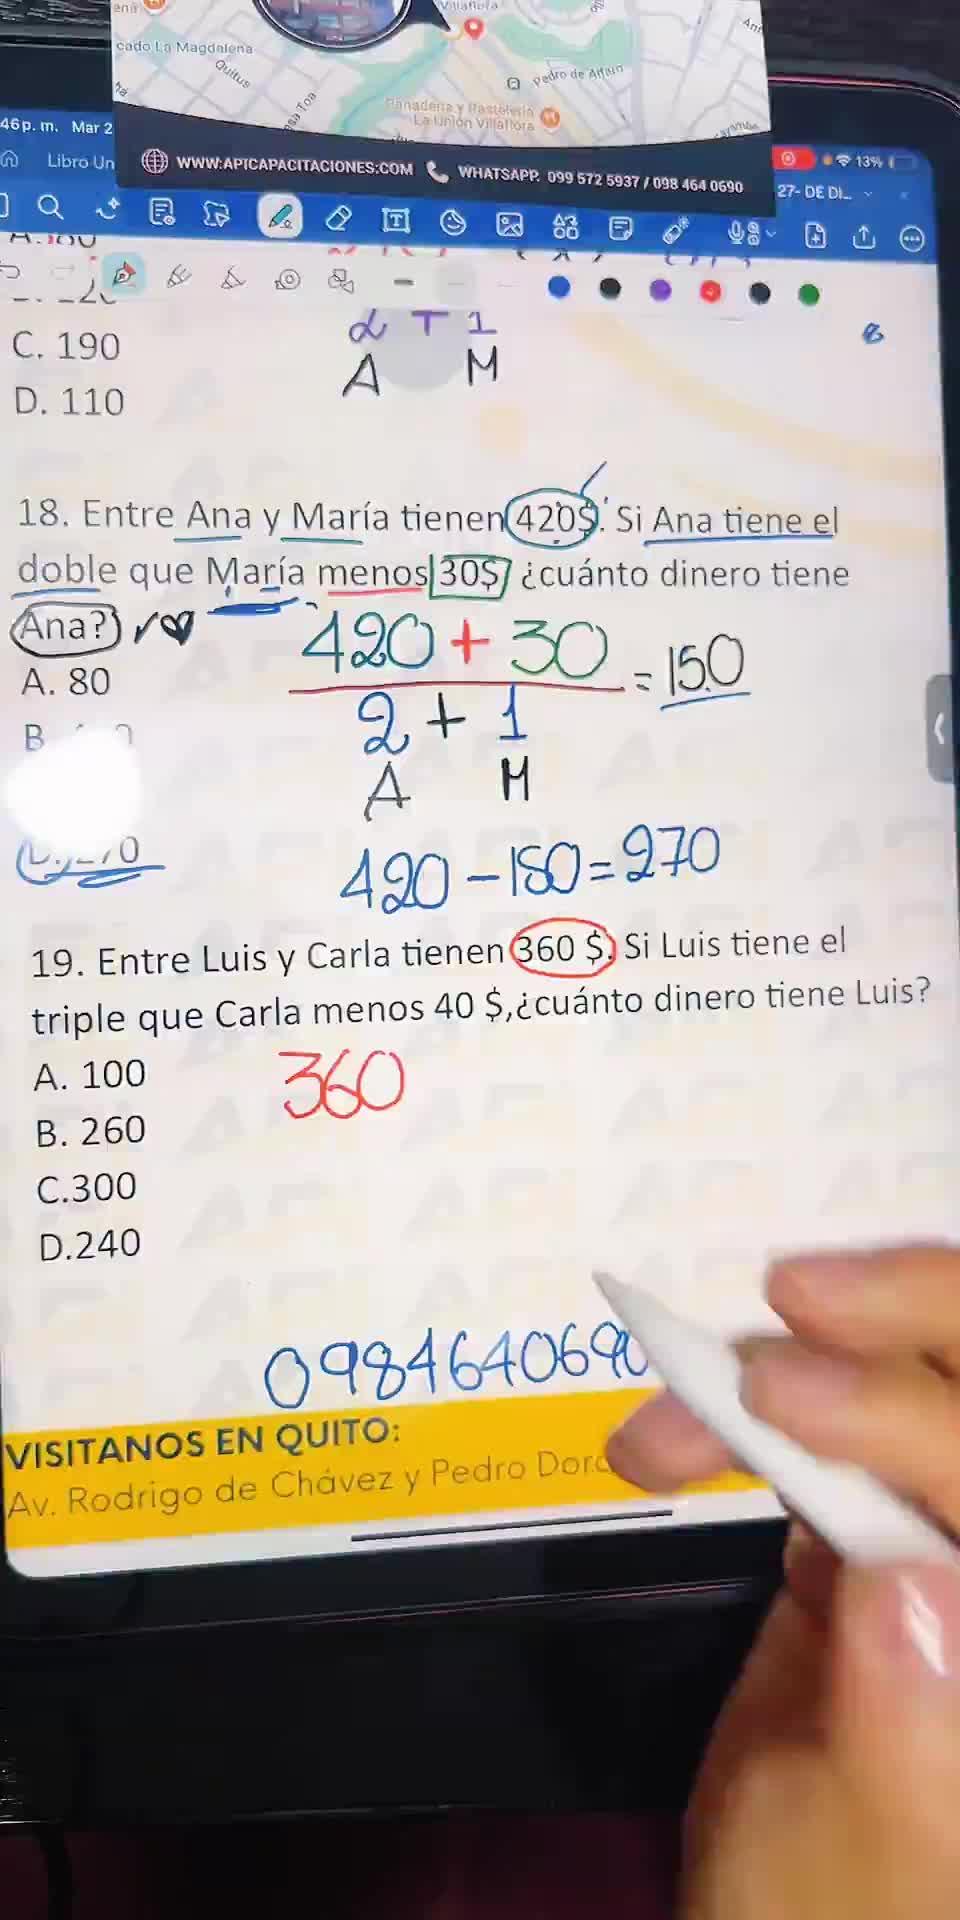 Villaflora
cado La Magdalena
Quitus
Pedro de Alfaro
Panadería y Pastelería
La Unión Villaflora
WWW.APICAPACITACIONES.COM WHATSAPP. 099 572 5937 / 098 464 0690
46 p. m. Mar 2
13%
Libro Un
27- DE DI...
C. 190
2 + 1
A M
D. 110
8
18. Entre Ana y María tienen 420$. Si Ana tiene el
doble que María menos 30$ ¿cuánto dinero tiene
Ana?
420 + 30
= 150
2 + 1
A M
A. 80
B
D. 270
420 - 150 = 270
19. Entre Luis y Carla tienen 360 $. Si Luis tiene el
triple que Carla menos 40 $,¿cuánto dinero tiene Luis?
A. 100
360
B. 260
C.300
D.240
0984640690
VISITANOS EN QUITO:
Av. Rodrigo de Chávez y Pedro Dor